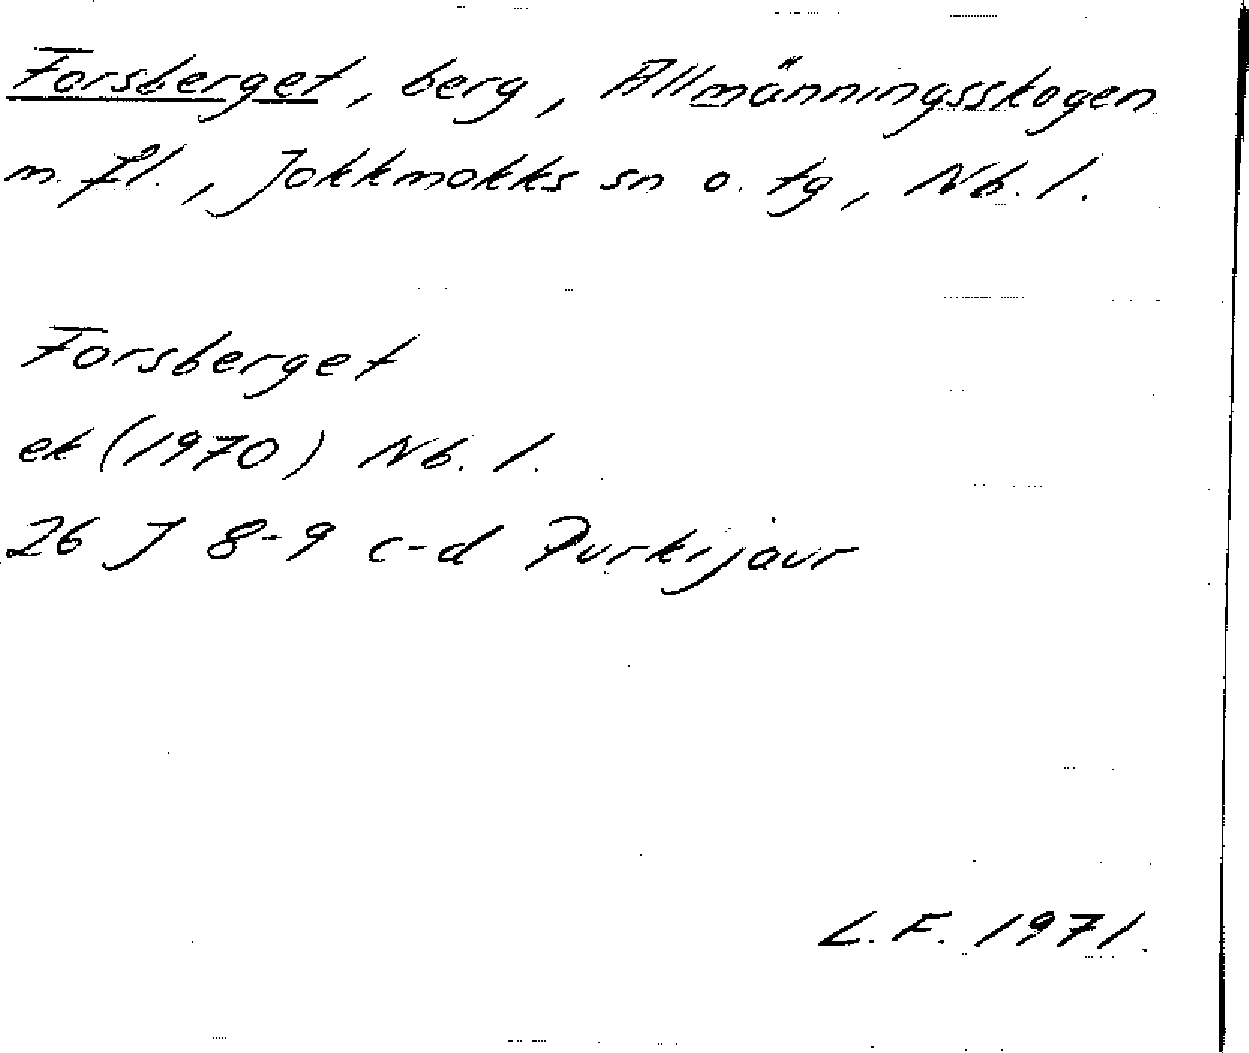 Forsberget, berg, Allmänningsskogen
m. fl., Jokkmokks sn o. tg, Nb. l.
Forsberget
ek (1970) Nb. l.
26 J 8-9 c-d Purkijaur
L. F. 1971.